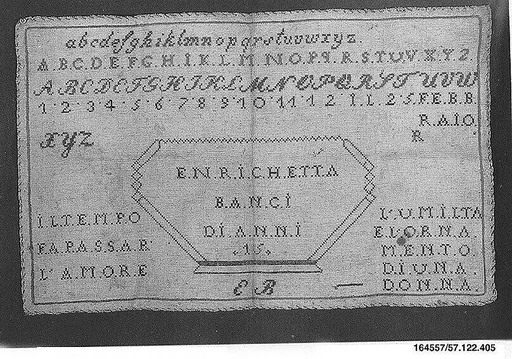 abcdefghiklmnopqrstuvwxyz.
A.B.C.D.E.F.G.H.I.K.L.M.N.O.P.Q.R.S.T.U.V.X.Y.Z.
ABCDEFGHIKLMNOPQRSTUVW
1·2·3·4·5·6·7·8·9·10·11·12 I.L.25.F.E.B.B.
R.A.I.O.
R
XYZ
E.N.R.I.C.H.E.T.T.A
B.A.N.C.I
D.I.A.N.N.I
.15.
I.L.T.E.M.P.O
F.A.P.A.S.S.A.R
L'A.M.O.R.E
L'U.M.I.L.T.A
E.L'O.R.N.A.
M.E.N.T.O.
D.I.U.N.A.
D.O.N.N.A.
E B
164557/57.122.405